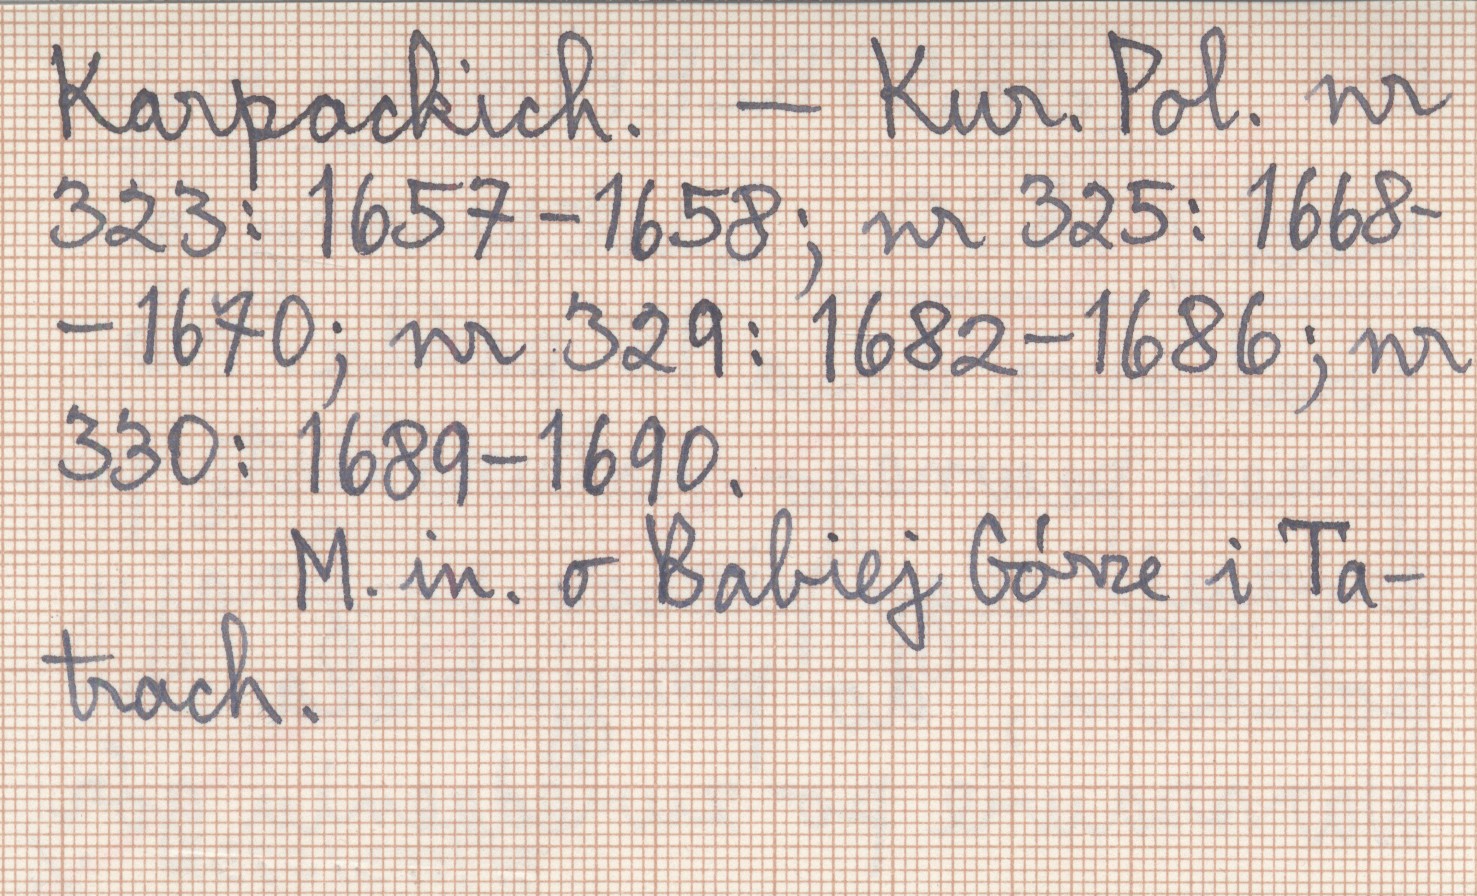 Karpackich. — Kur. Pol. nr
323: 1657-1658; nr 325: 1668-
-1670; nr 329: 1682-1686; nr
330: 1689-1690.
M. in. o Babiej Górze i Ta-
trach.